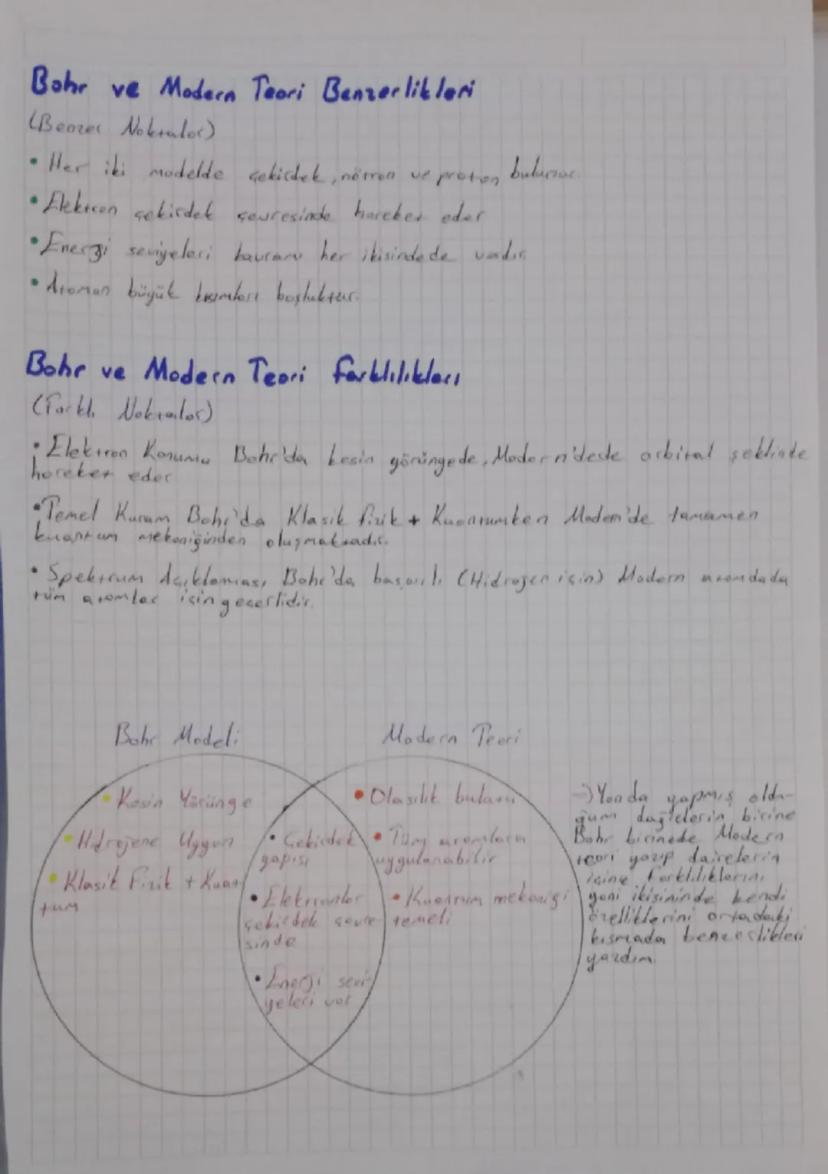 Bohr ve Modern Teori Benzerlikleri
(Benzer Noktalar)
• Her iki modelde çekirdek, nötron ve proton bulunur.
• Elektron çekirdek çevresinde hareket eder
• Energi seviyeleri kavramı her ikisindede vadır.
• Atomun büyük kısımları boşluktur.
Bohr ve Modern Teori Farklılıkları
(Farklı Noktalar)
• Elektron Konumu Bohr'da kesin yörüngede, Modern'deste orbital şeklinde
hareket eder
• Temel Kuram Bohr'da Klasik fizik + Kuantumken Modern'de tamamen
kuantum mekaniğinden oluşmaktadır.
• Spektrum Açıklaması Bohr'da başarılı (Hidrojen için) Modern atomdada
tüm atomlar için geçerlidir.
Bohr Modeli
Modern Teori
• Kesin Yörünge
• Hidrojene Uygun
• Klasik Fizik + Kuan
tum
• Çekirdek
yapısı
• Elektronlar
çekirdek çevre
sinde
• Energi sevi
yeleri var
• Olasılık bulutu
• Tüm atomlara
uygulanabilir
• Kuantum mekaniği
temeli
→ Yanda yapmış oldu-
ğum dairelerin birine
Bohr birinede Modern
teori yazıp dairelerin
içine farklılıklarını
yani ikisininde kendi
özelliklerini ortadaki
kısmada benzerlikleri
yazdım.